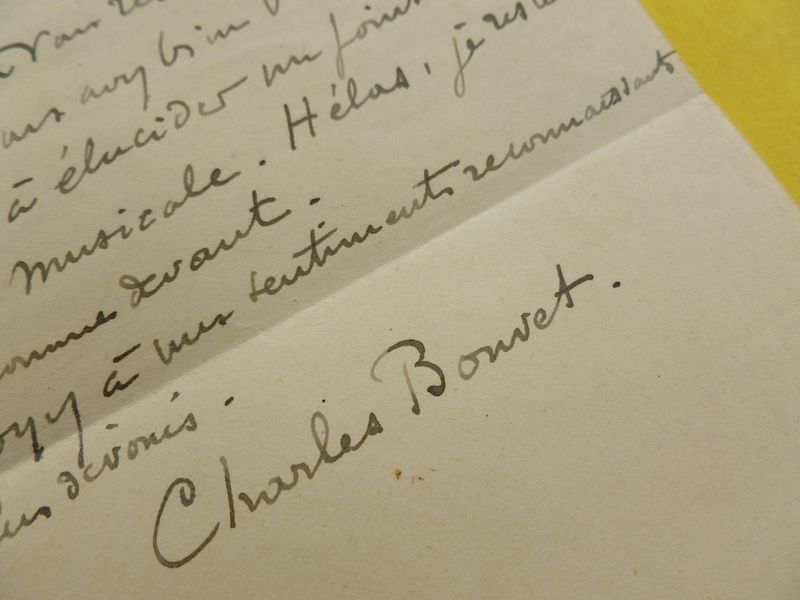 avez bien
à élucider un point
musicale. Hélas, je reste
comme devant.
Croyez à mes sentiments reconnaissants
plus dévoués.
Charles Bouvet.